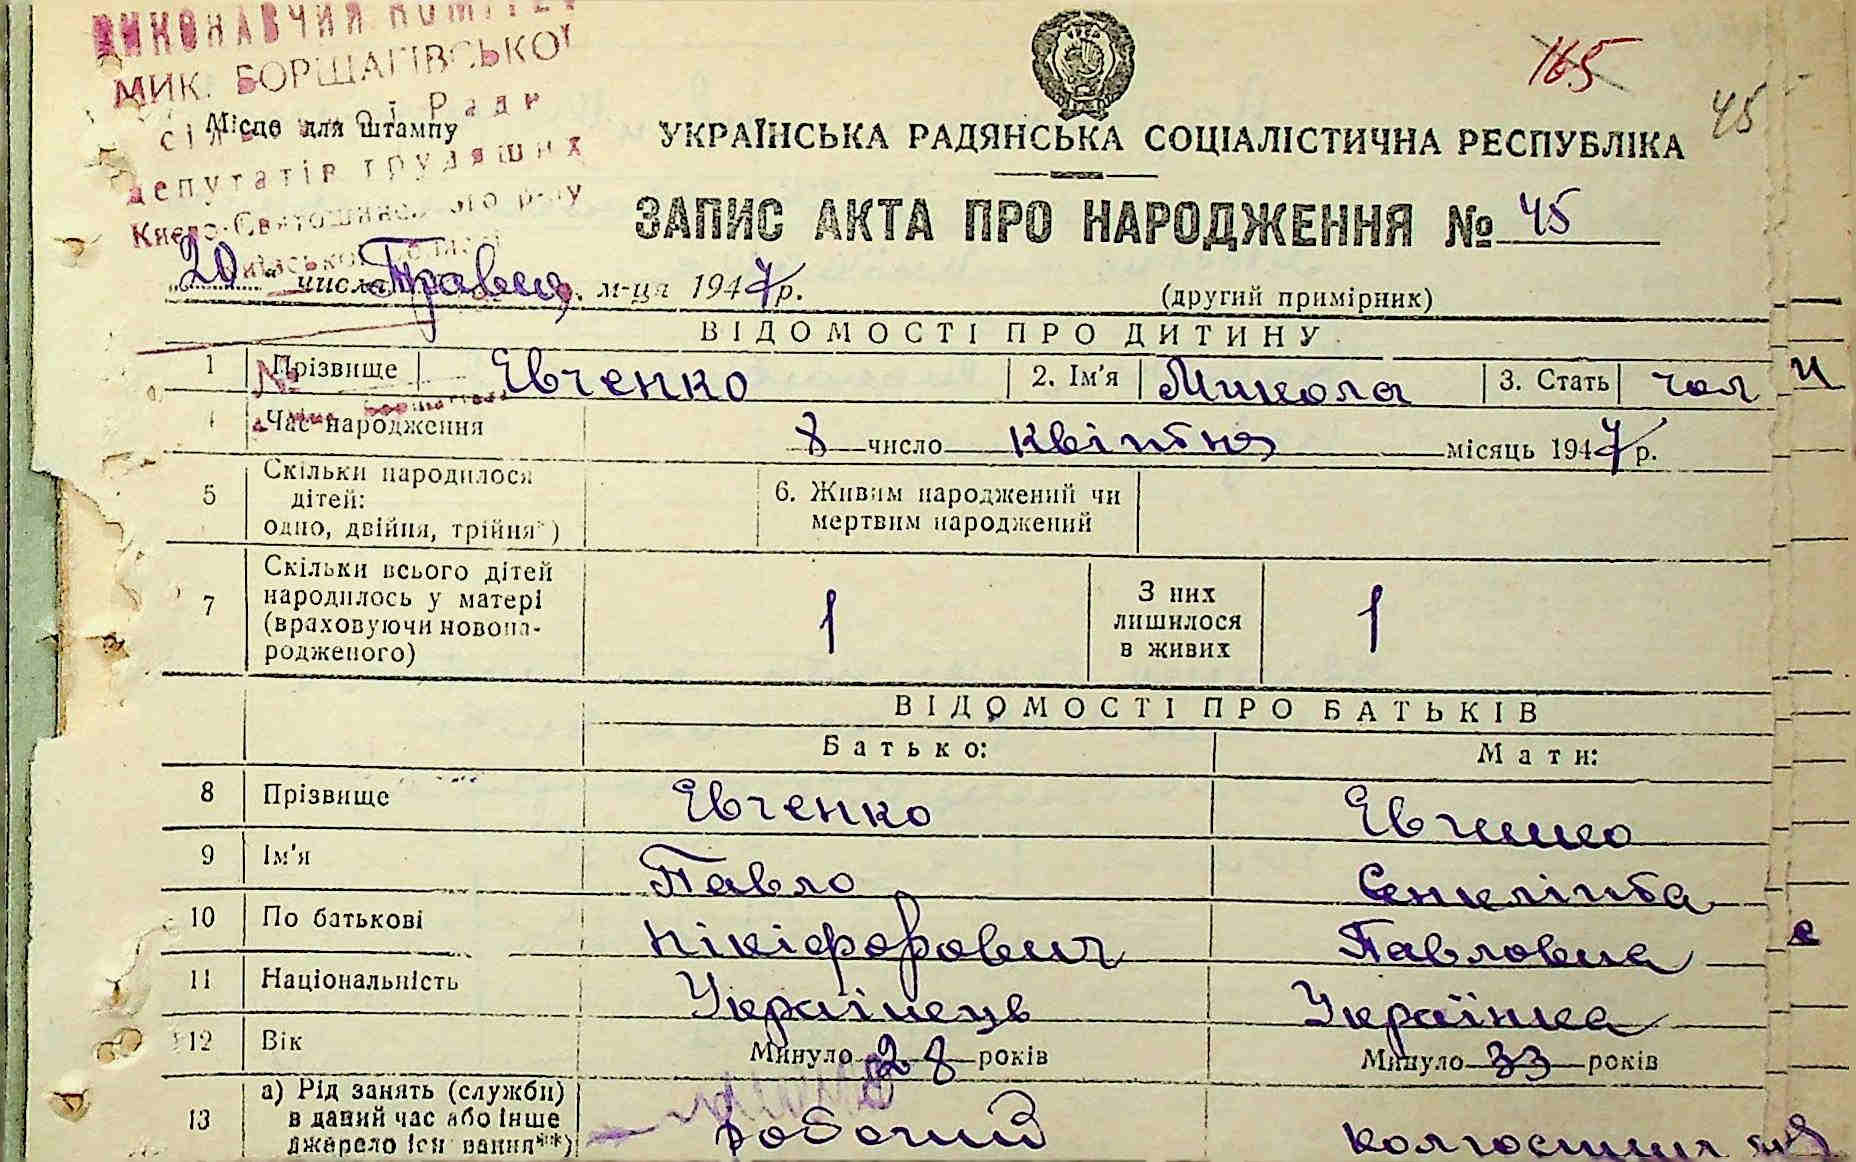 ВИКОНАВЧИЙ КОМІТЕТ
МИК. БОРЩАГІВСЬКОЇ
сільської Ради
депутатів трудящих
Києво-Святошинського р-ну
Київської області
Місце для штампу
165
45
УКРАЇНСЬКА РАДЯНСЬКА СОЦІАЛІСТИЧНА РЕСПУБЛІКА
ЗАПИС АКТА ПРО НАРОДЖЕННЯ № 45
„20“ числа Травня м-ця 1947 р.
(другий примірник)
ВІДОМОСТІ ПРО ДИТИНУ
1 Прізвище Євченко 2. Ім'я Микола 3. Стать чол
Час народження 8 число квітня місяць 1947 р.
5 Скільки народилося дітей: одно, двійня, трійня*) 6. Живим народжений чи мертвим народжений
7 Скільки всього дітей народилось у матері (враховуючи новона-родженого) 1 З них лишилося в живих 1
ВІДОМОСТІ ПРО БАТЬКІВ
Батько: Мати:
8 Прізвище Євченко Євченко
9 Ім'я Павло
10 По батькові Нікіфорович Павловна
11 Національність Українець Українка
12 Вік Минуло 28 років Минуло 33 років
13 а) Рід занять (служби) в даний час або інше джерело існування**) робочий